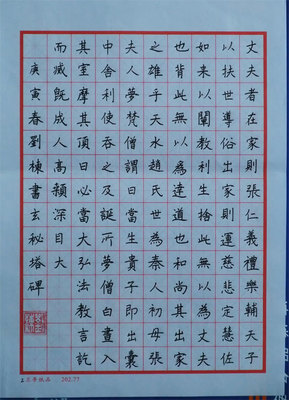 丈夫者在家則張仁義禮樂輔天子
以扶世導俗出家則運慈悲定慧佐
如來以闡教利生捨此無以為丈夫
也背此無以為達道也和尚其出家
之雄乎天水趙氏世為秦人初母張
夫人夢梵僧謂曰當生貴子即出囊
中舍利使吞之及誕所夢僧白晝入
其室摩其頂曰必當大弘法教言訖
而滅既成人高顙深目大
庚寅春劉棟書玄秘塔碑
202.77